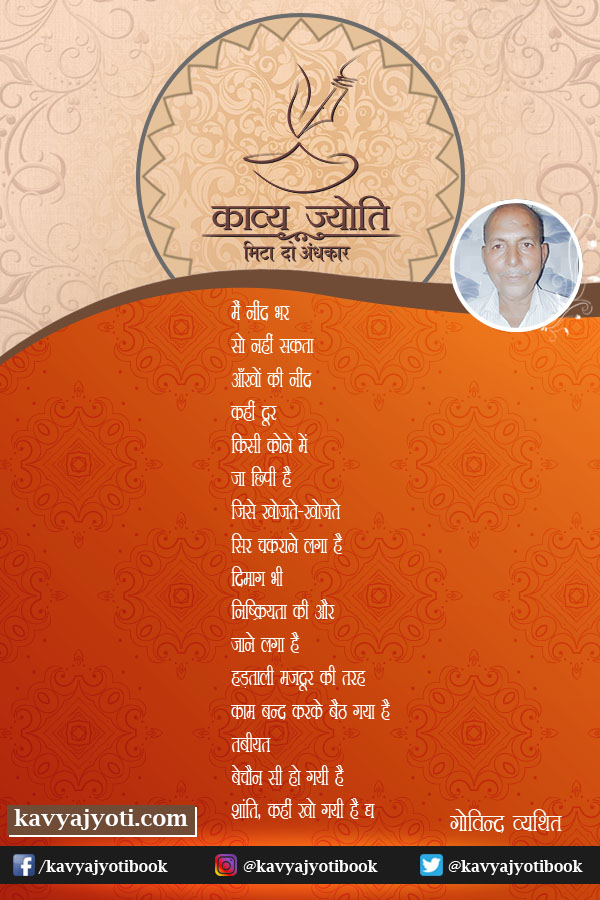 काव्य ज्योति
मिटा दो अंधकार
मैं नींद भर
सो नहीं सकता
आँखों की नींद
कहीं दूर
किसी कोने में
जा छिपी है
जिसे खोजते-खोजते
सिर चकराने लगा है
दिमाग भी
निष्क्रियता की और
जाने लगा है
हड़ताली मजदूर की तरह
काम बन्द करके बैठ गया है
तबीयत
बेचौन सी हो गयी है
शांति, कहीं खो गयी है द्य
गोविन्द व्यथित
kavyajyoti.com
/kavyajyotibook
@kavyajyotibook
@kavyajyotibook